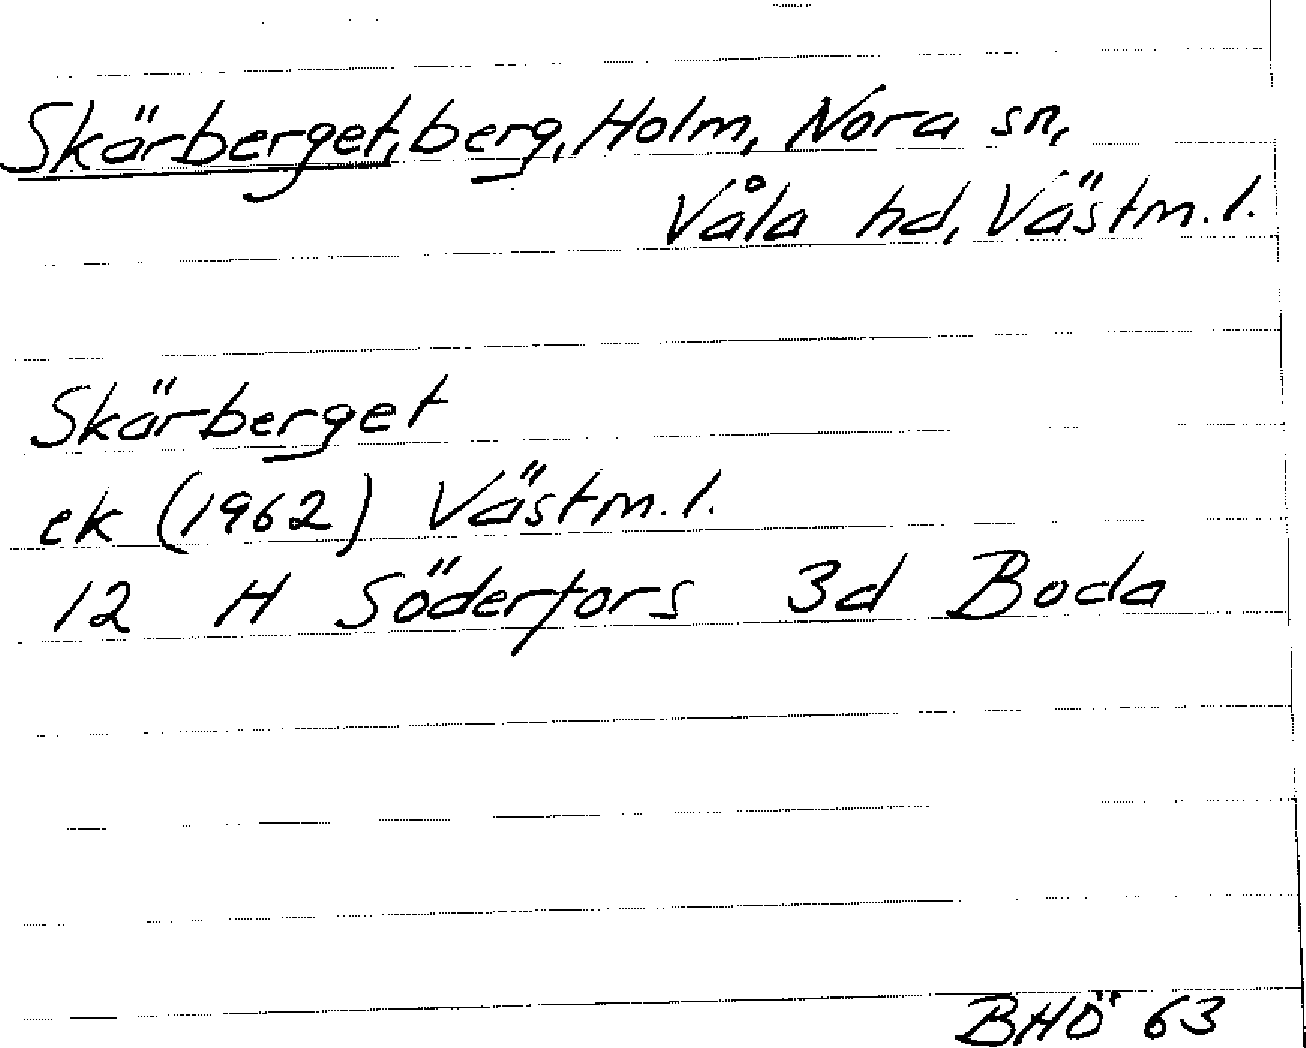 Skärberget, berg, Holm, Nora sn,
Våla hd, Västm. l.
Skärberget
ek (1962) Västm. l.
12 H Söderfors 3d Boda
BHÖ 63